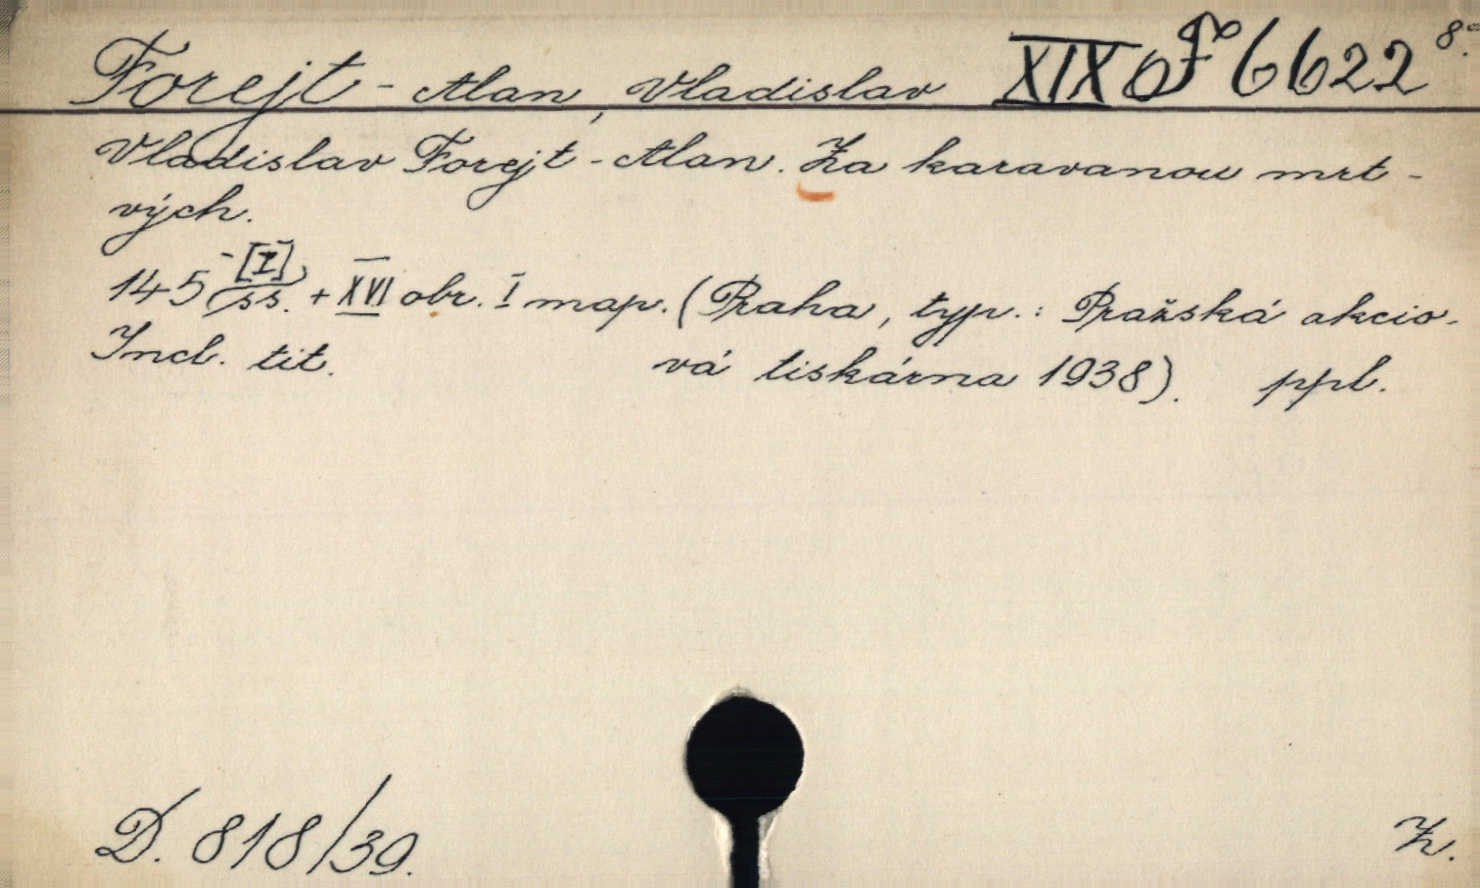 Forejt - Alan, Vladislav XIX F 6622 8°.
Vladislav Forejt - Alan. Za karavanou mrt-
vých.
145 - [I] ss. + XVI obr. I map. (Praha, typ.: Pražská akcio-
Incl. tit. vá tiskárna 1938). ppl.
D. 818/39. Ž.